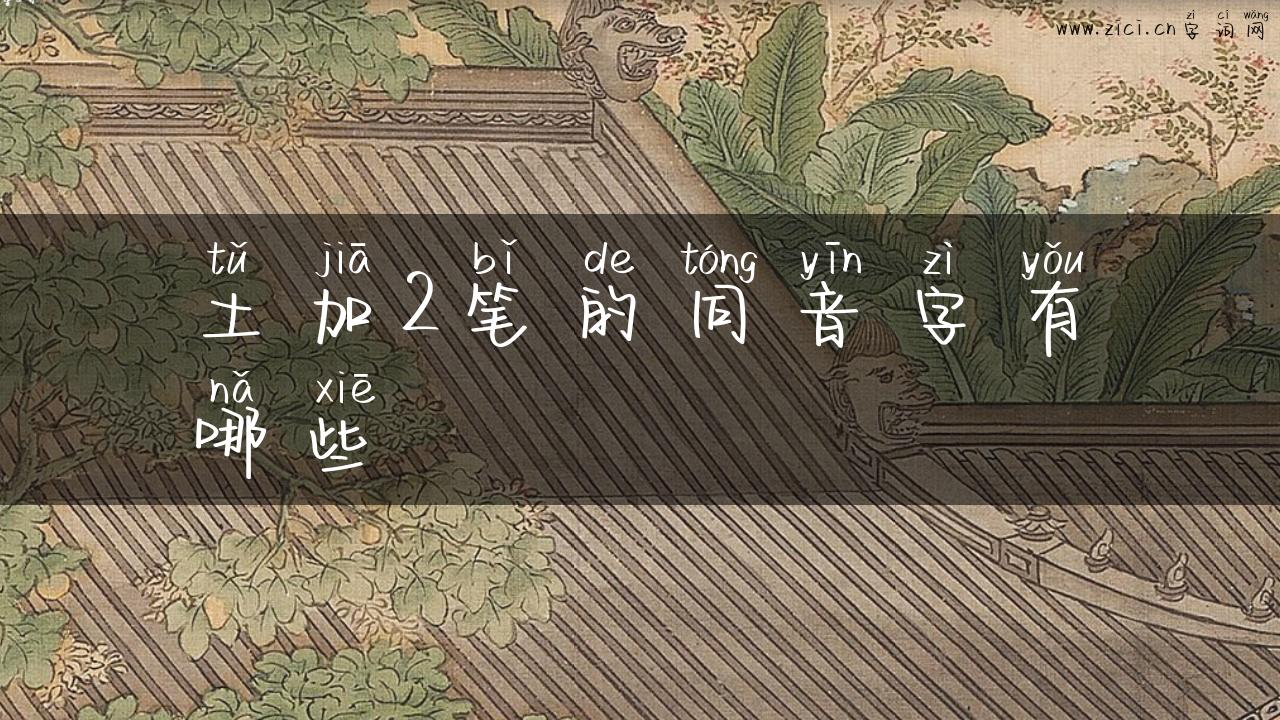 www.zici.cn 字词网
zì cí wǎng
tǔ jiā bǐ de tóng yīn zì yǒu
土加2笔的同音字有
nǎ xiē
哪些